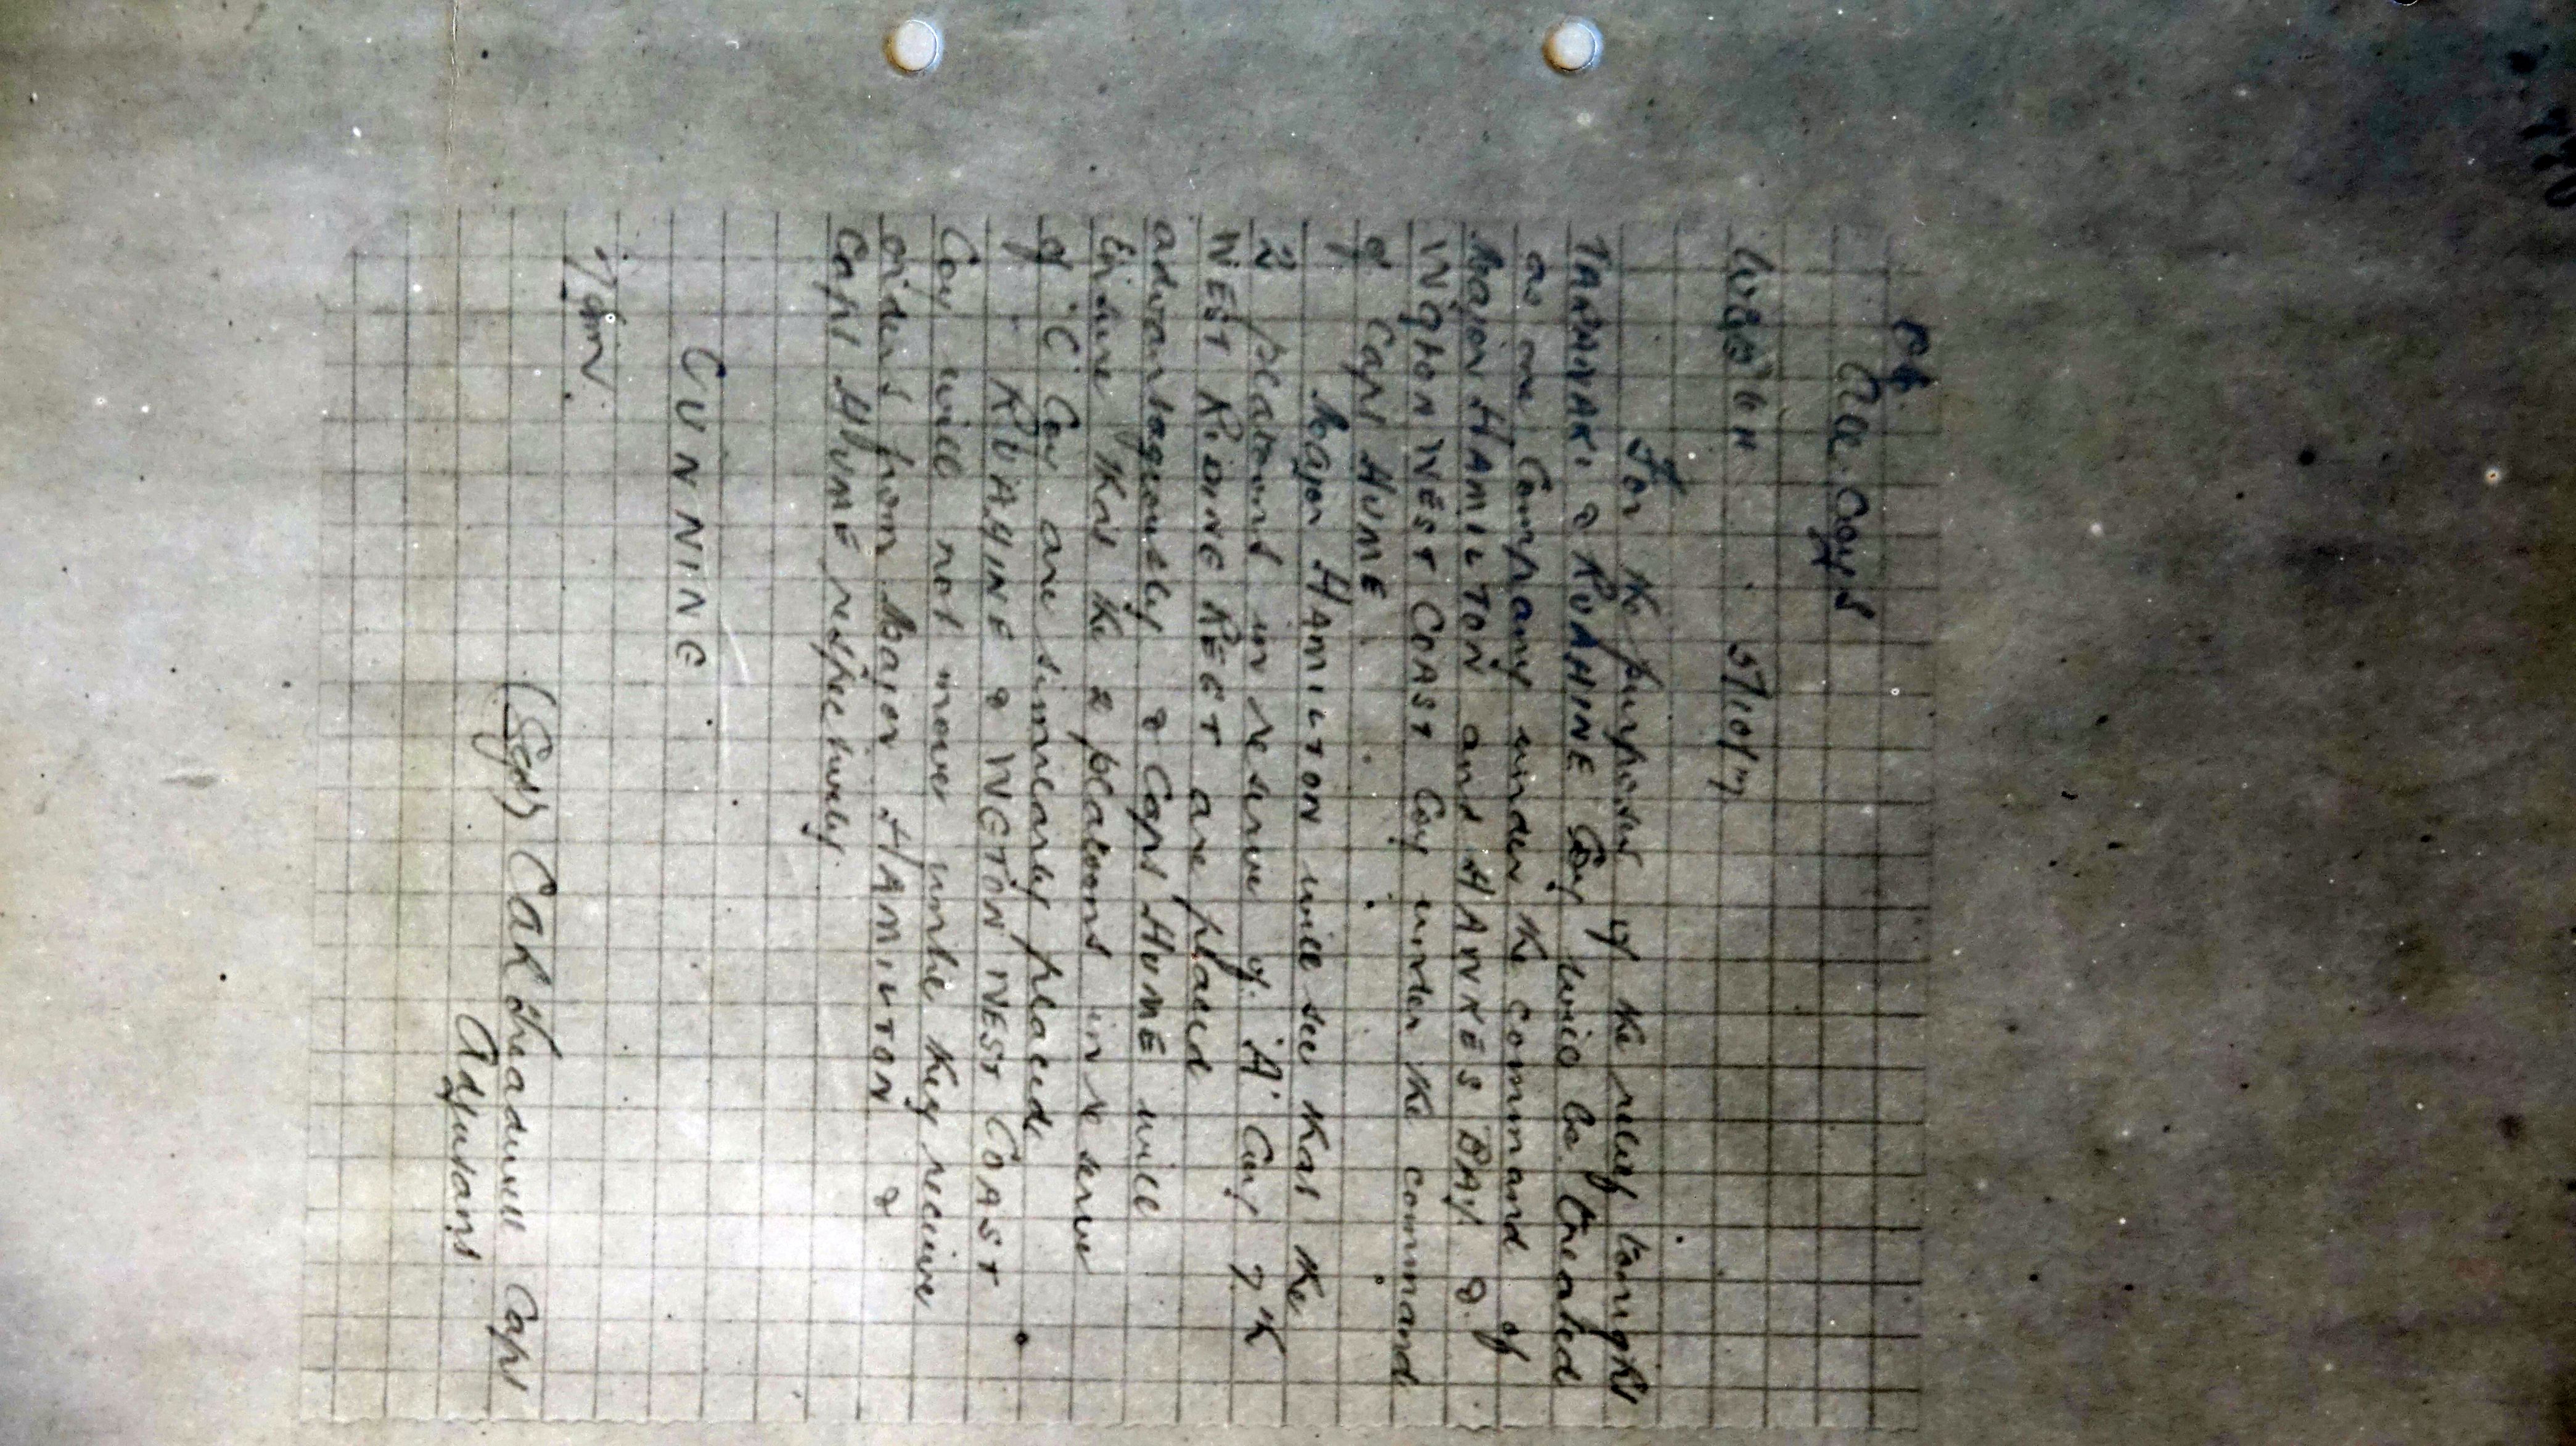 All Coys
5/10/17
For the purposes of the relief tonight
TARANAKI & RUAHINE Coy will be treated
as one Company under the command of
Major HAMILTON and HAWKES BAY &
WGTON WEST COAST Coy under the command
of Capt HUME
Major HAMILTON will see that the
2 platoons in reserve of 'A' Coy 7th
WEST RIDING REGT are placed
advantageously & Capt HUME will
ensure that the 2 platoons in reserve
of 'C' Coy are similarly placed
RUAHINE & WGTON WEST COAST
Coy will not move until they receive
orders from Major HAMILTON &
Capt HUME respectively.
CUNNING
(Sgd) Treadwell Capt
Adjutant